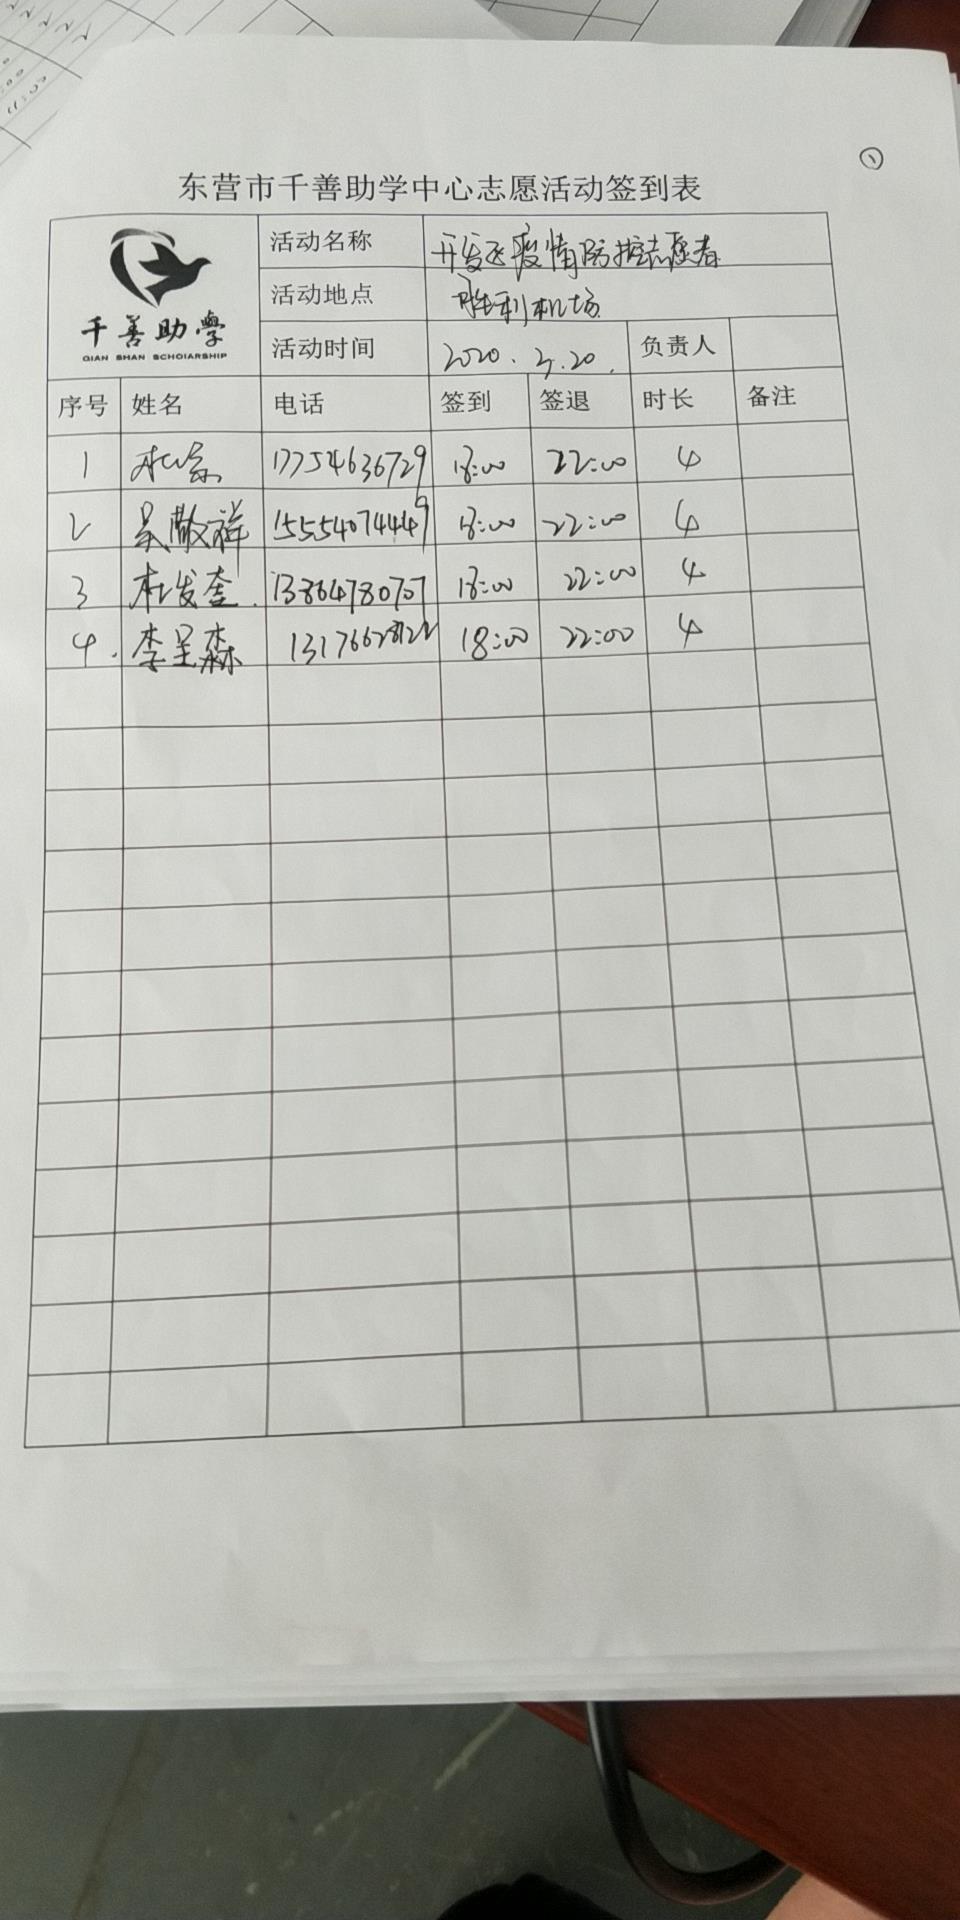 ①
东营市千善助学中心志愿活动签到表
千善助學
QIAN SHAN SCHOIARSHIP
活动名称 开发区疫情防控志愿者
活动地点 胜利机场
活动时间 2020. 3.20. 负责人
序号 姓名 电话 签到 签退 时长 备注
1 17754636729 18:00 22:00 4
2 吴敬祥 15554074449 18:00 22:00 4
3 杜发奎. 18:00 22:00 4
4. 李呈森 18:00 22:00 4